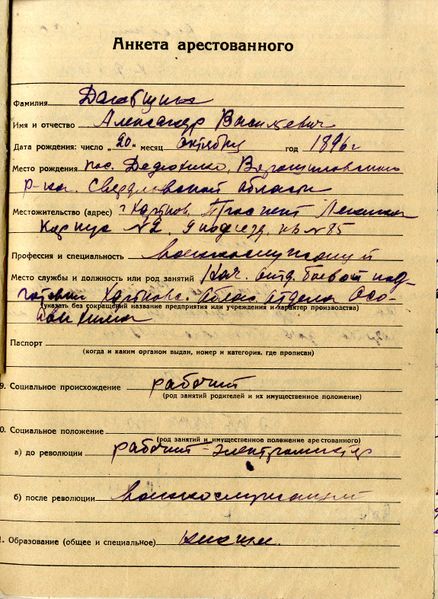 Анкета арестованного
Фамилия
Имя и отчество Александр
Дата рождения: число „20" месяц октября год 1896 г
Место рождения пос. Дедюхино, Ворошиловского
р-на. Свердловской области
Местожительство (адрес) г. Харьков. Проспект Ленина
Корпус №2. 9 подъезд. кв №85
Профессия и специальность военнослужащий
Место службы и должность или род занятий Нач. отд. боевой под-
готовки Харьковс. Област отдела Осо-
авиахима
(указать без сокращений название предприятия или учреждения и характер производства)
Паспорт
(когда и каким органом выдан, номер и категория, где прописан)
9. Социальное происхождение рабочий
(род занятий родителей и их имущественное положение)
0. Социальное положение
(род занятий и имущественное положение арестованного)
а) до революции рабочий-электромонтер
б) после революции военнослужащий
1. Образование (общее и специальное) низшее.